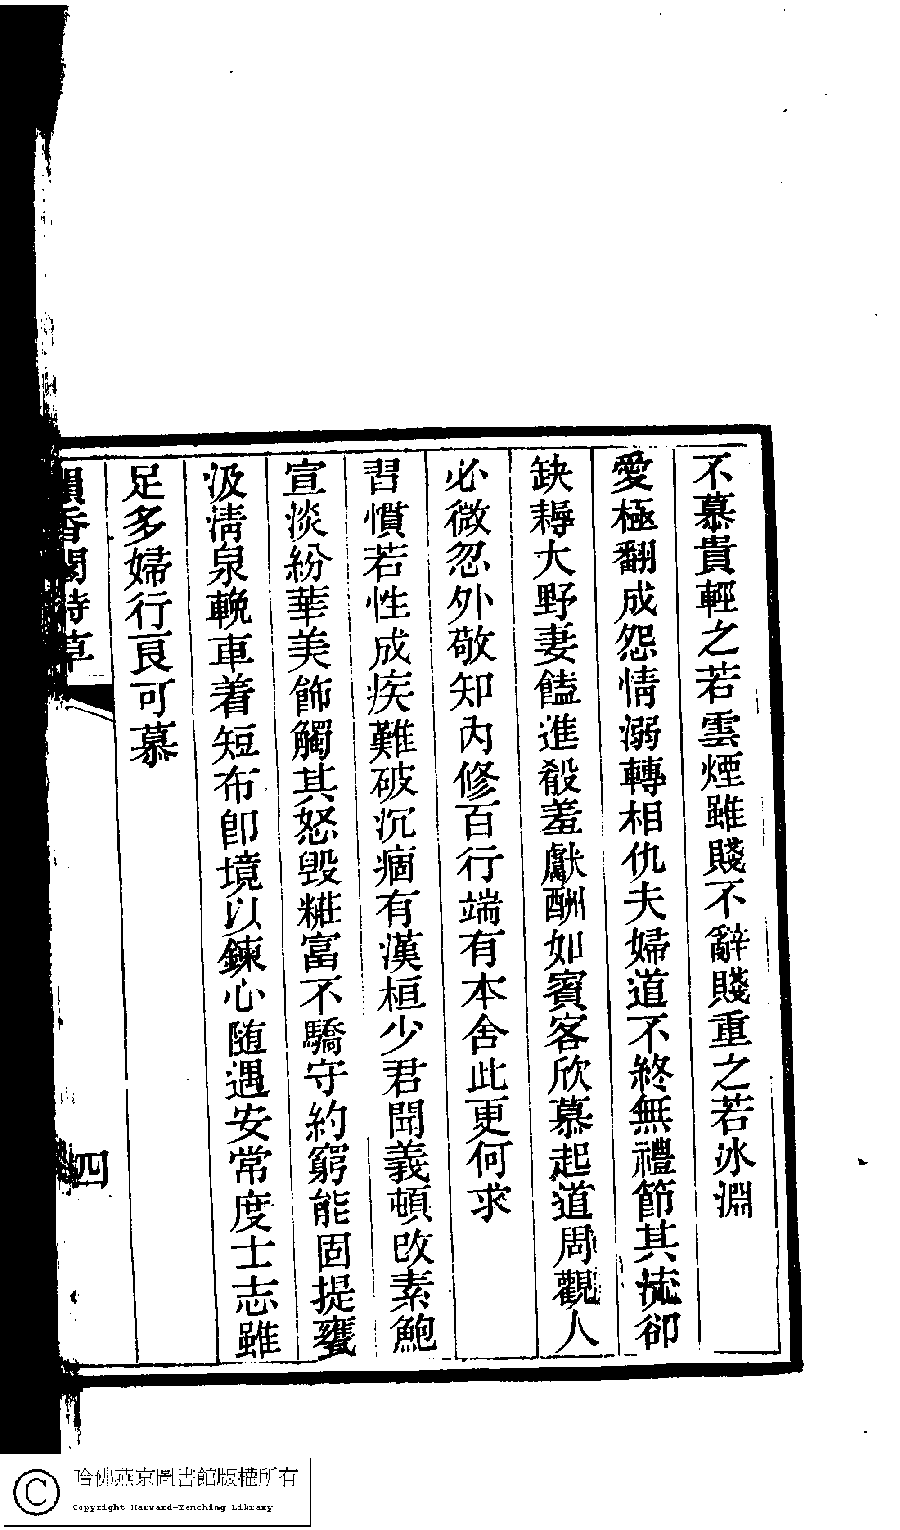 不慕貴輕之若雲煙雖賤不辭賤重之若冰淵
愛極翻成怨情溺轉相仇夫婦道不終無禮節其流卻
缺耨大野妻饁進殽羞獻酬如賓客欣慕起道周觀人
必微忽外敬知內修百行端有本舍此更何求
習慣若性成疾難破沉痼有漢桓少君聞義頓改素鮑
宣淡紛華美飾觸其怒毀糚富不驕守約窮能固提甕
汲清泉輓車着短布卽境以鍊心随遇安常度士志雖
足多婦行良可慕
韻香閣詩草
四
哈佛燕京圖書館版權所有
Copyright Harvard-Yenching Library